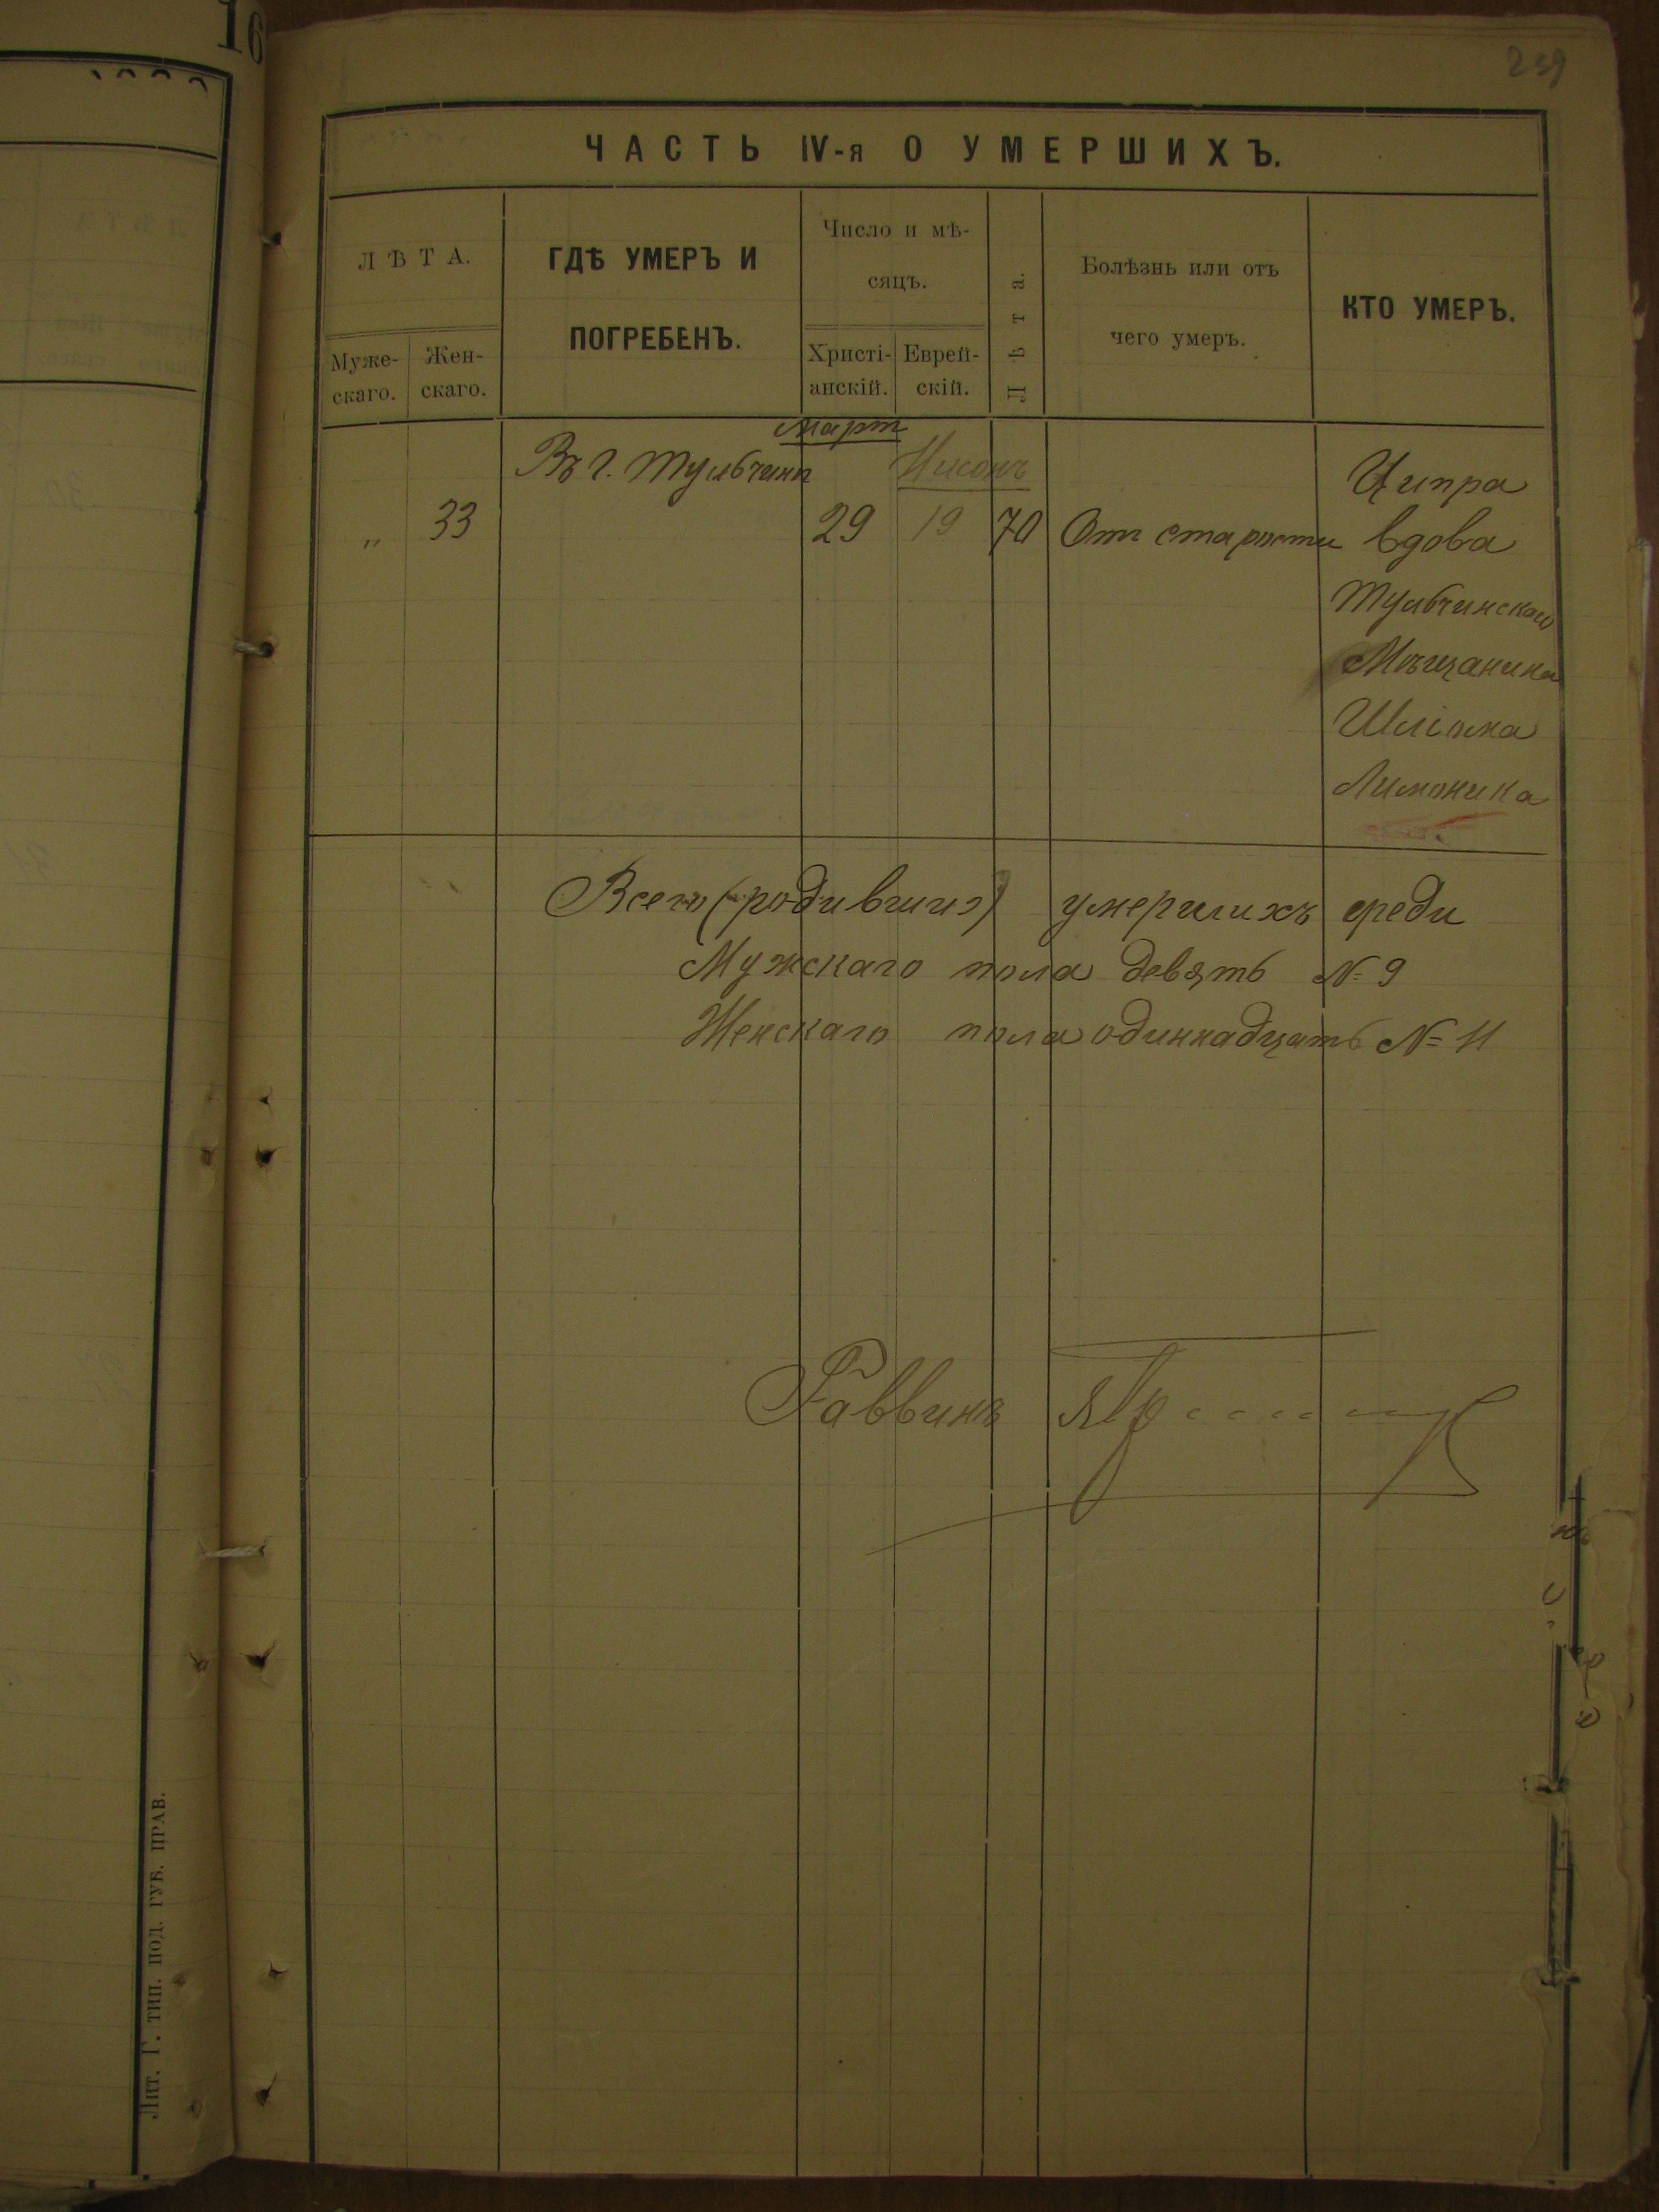 16
239
ЧАСТЬ IV-я О УМЕРШИХЪ.
ЛѢТА.
Муже-
скаго.
Жен-
скаго.
ГДѢ УМЕРЪ И
ПОГРЕБЕНЪ.
Число и мѣ-
сяцъ.
Христі-
анскій.
Еврей-
скій.
Лѣта.
Болѣзнь или отъ
чего умеръ.
КТО УМЕРЪ.
Мартъ
Въ г. Тульчинѣ Нисонъ Ципра
„ 33 29 19 70 Отъ старости вдова
Тульчинскаго
Мѣщанина
Шліома
Лимоника
Всего (родившихъ) умершихъ среди
Мужскаго пола девять № 9
Женскаго пола одиннадцать № 11
Раввинъ
Лит. Г. тип. под. губ. прав.